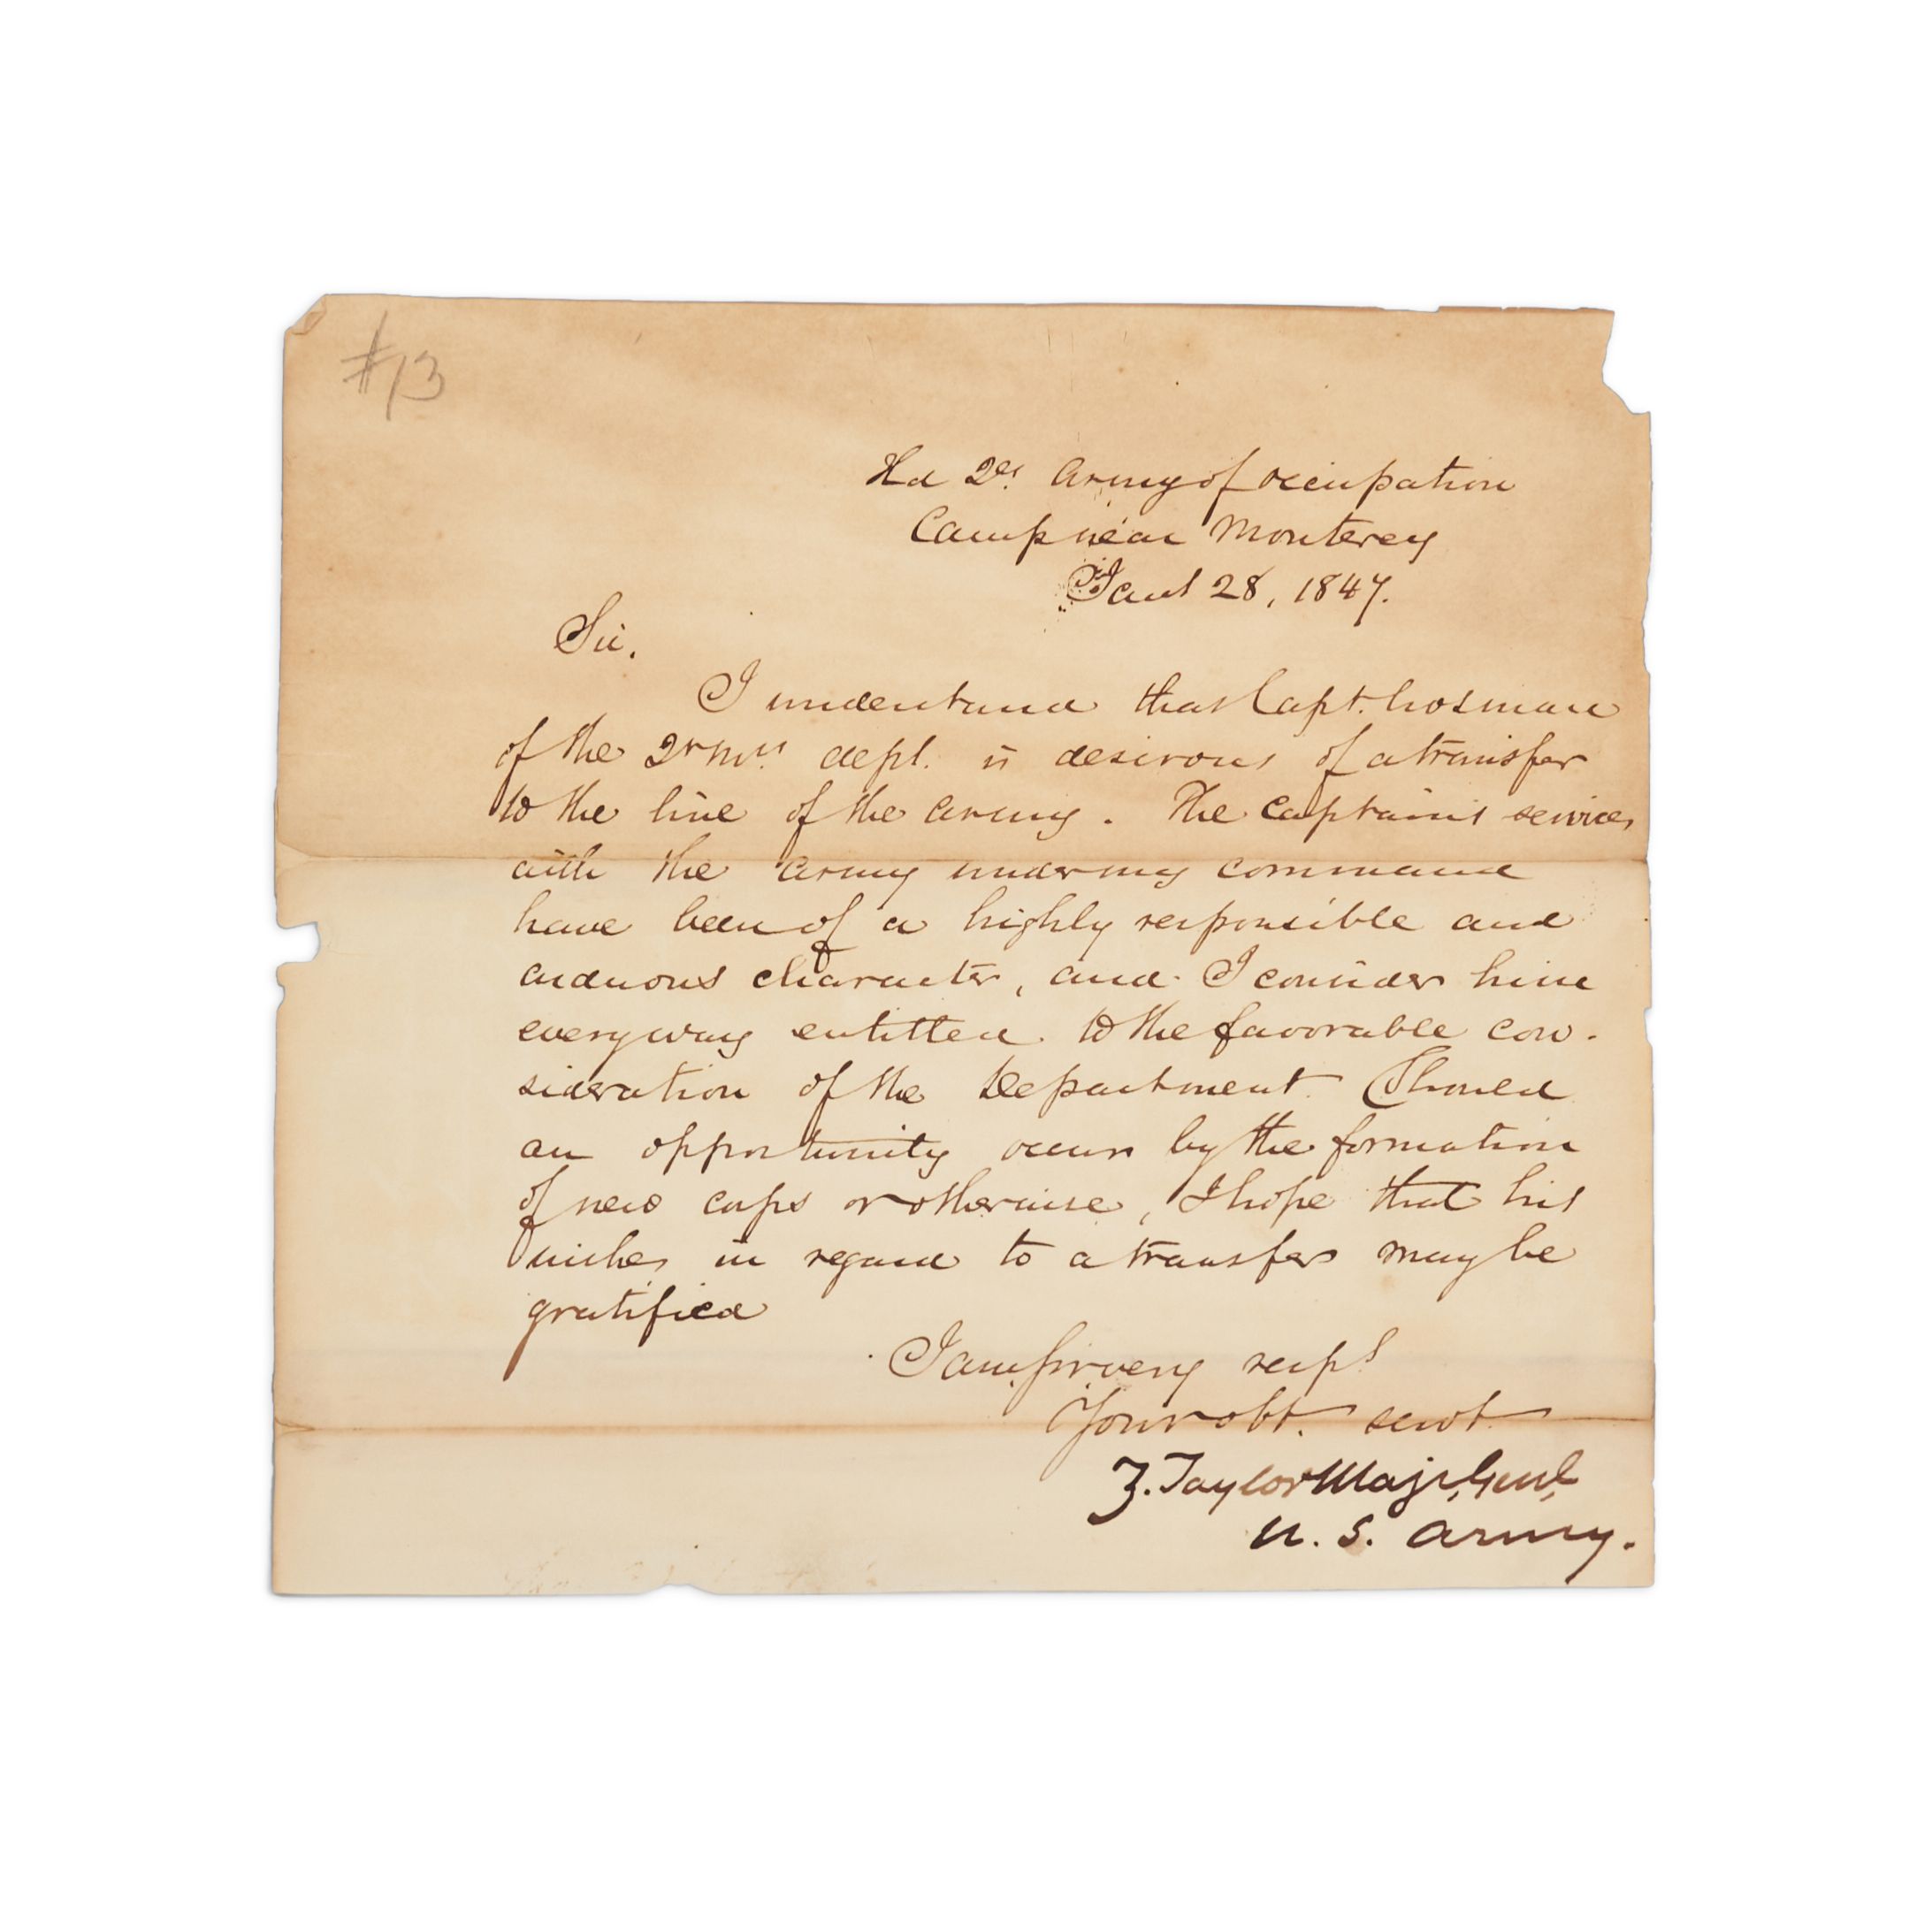 #13
Hd Qrs Army of Occupation
Camp near Monterey
Jany 28, 1847.
Sir.
I understand that Capt.
of the Qr Mrs dept. is desirous of a transfer
to the line of the Army. The Captain's services
with the Army under my command
have been of a highly responsible and
arduous character, and I consider him
every way entitled to the favorable con-
sideration of the Department. Should
an opportunity occur by the formation
of new corps or otherwise, I hope that his
wishes in regard to a transfer may be
gratified
I am Sir very respt
Your obt. servt
Z. Taylor Majr, Genl,
U. S. Army.